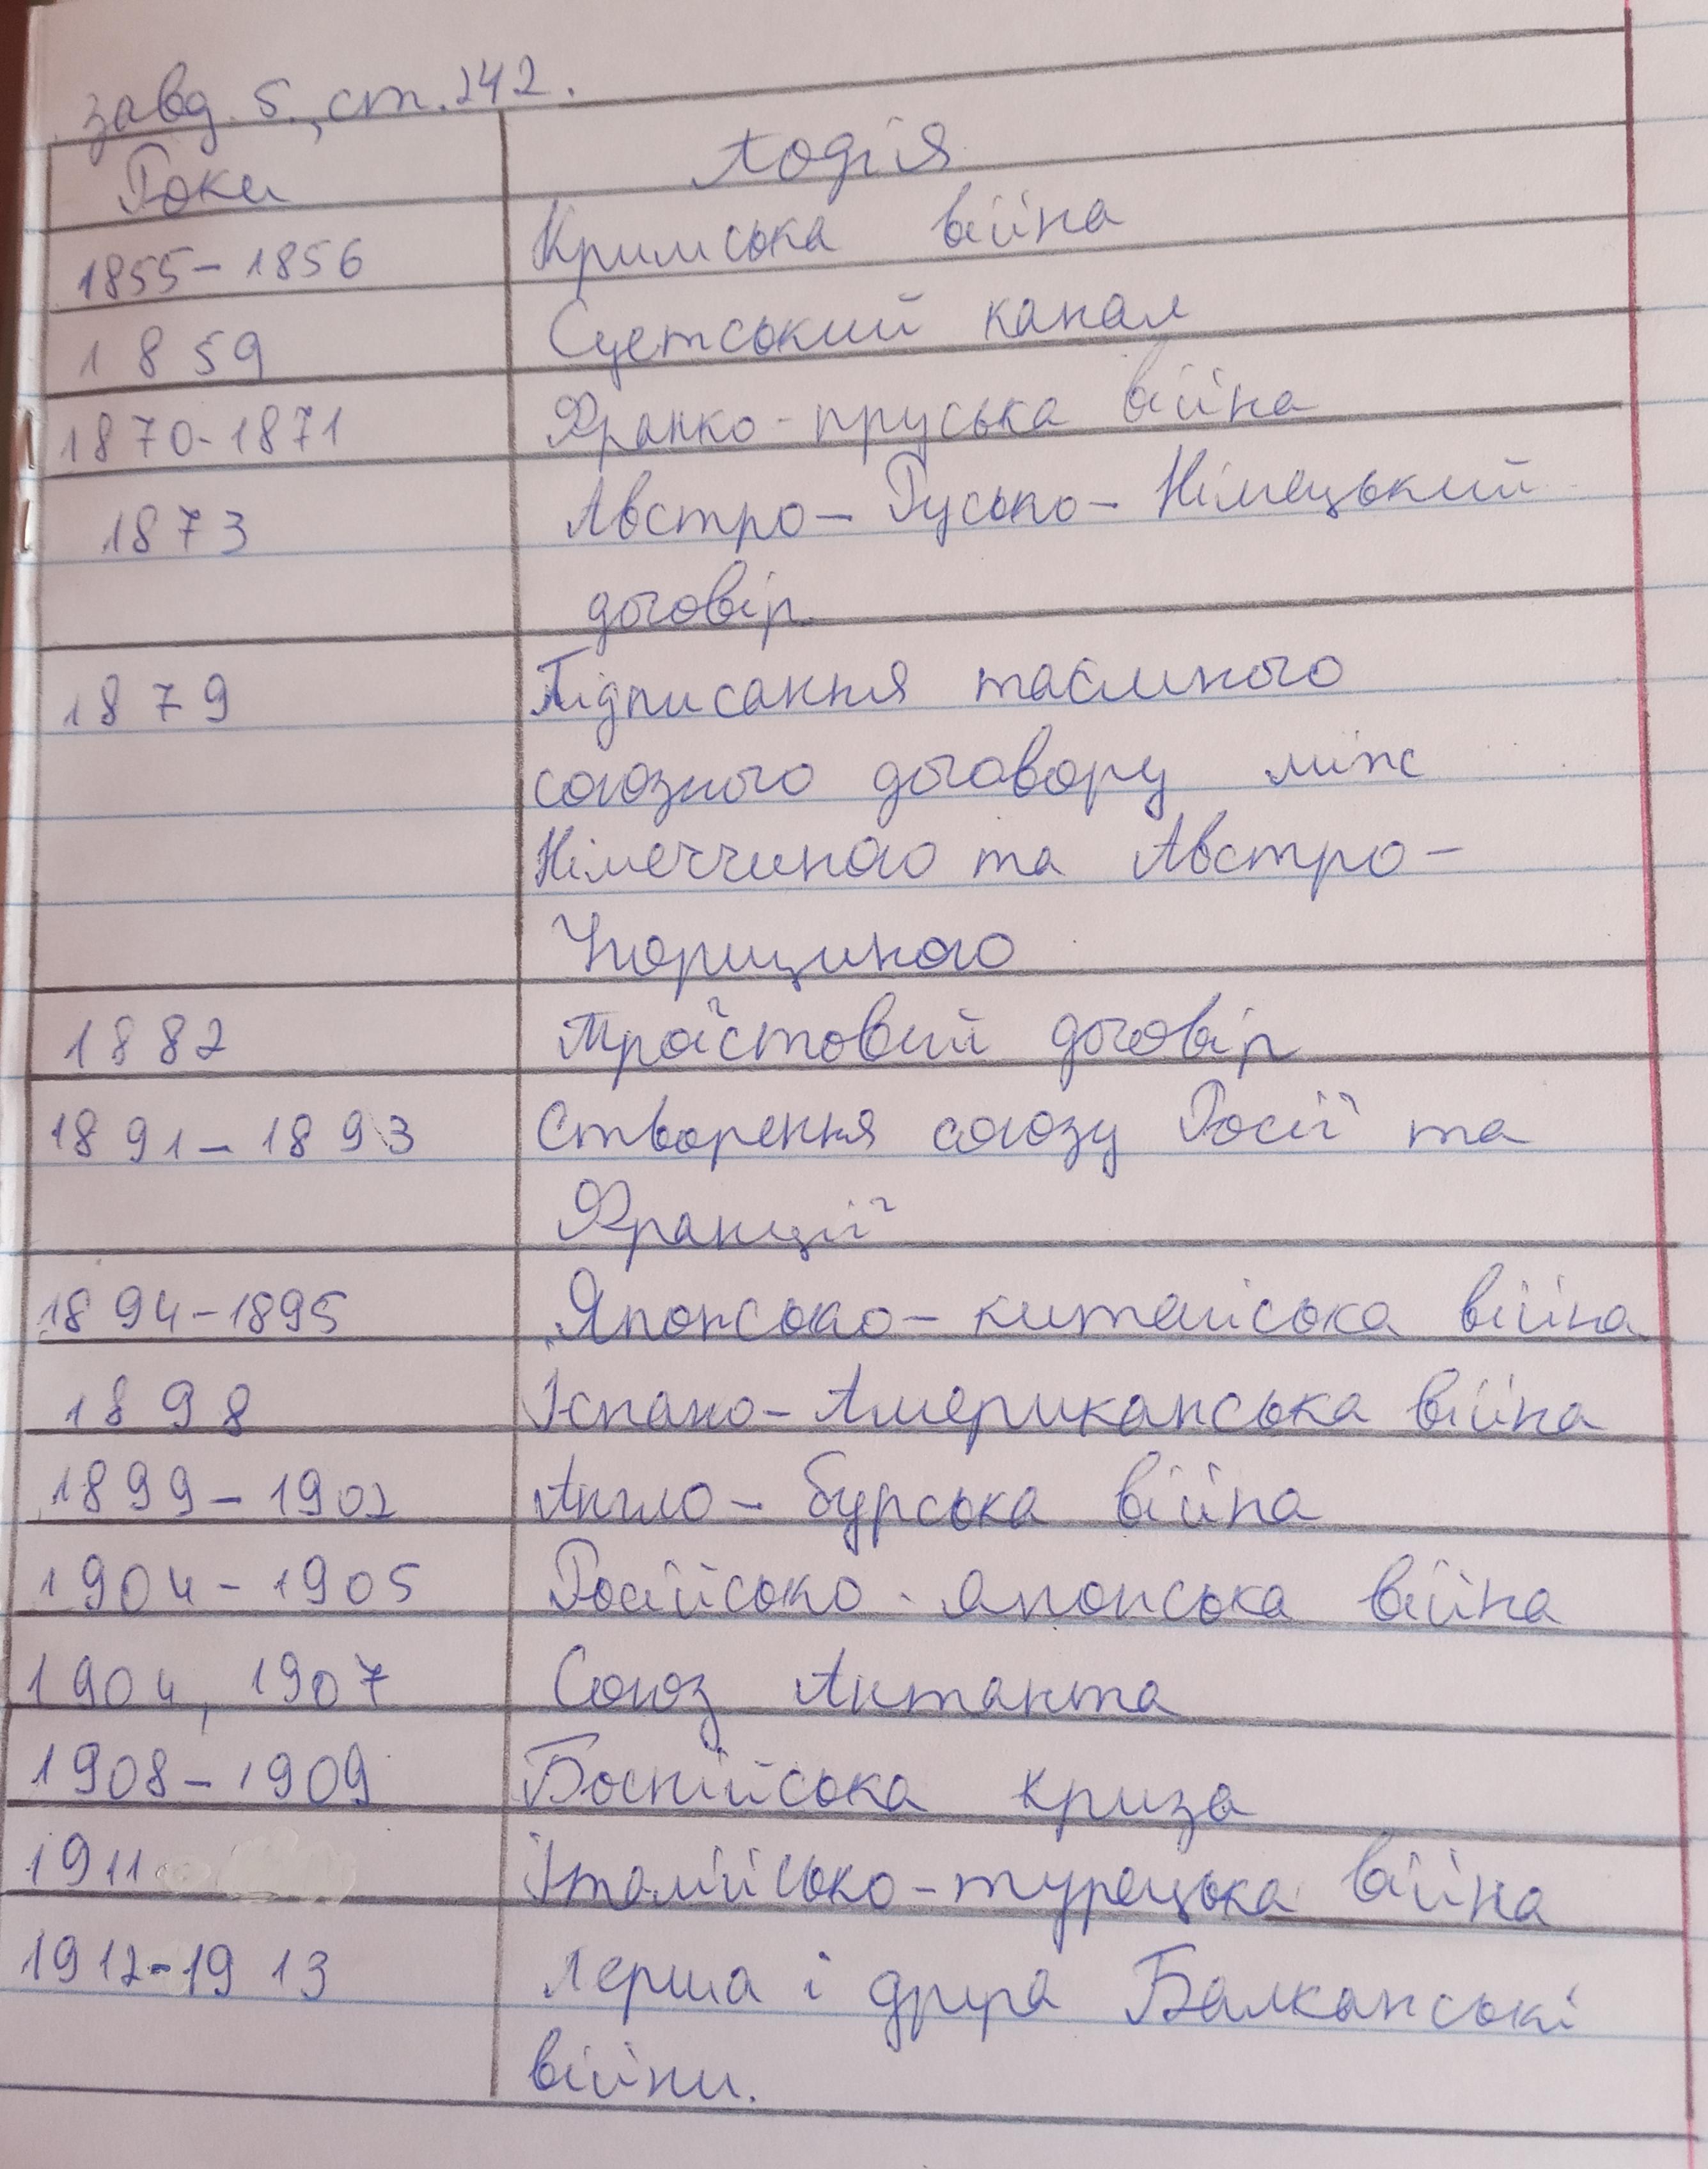 завд. 5., ст. 242.
Роки Подія
1855-1856 Кримська війна
1859 Суетський канал
1870-1871 Франко-пруська війна
1873 Австро-Русько-Німецький
договір.
1879 Підписання таємного
союзного договору між
Німеччиною та Австро-
Угорщиною
1882 Троїстовий договір
1891-1893 Створення союзу Росії та
Франції
1894-1895 Японсько-китайська війна
1898 Іспано-Американська війна
1899-1902 Англо-бурська війна
1904-1905 Російсько-японська війна
1904, 1907 Союз Антанта
1908-1909 Боснійська криза
1911 Італійсько-турецька війна
1912-1913 Перша і друга Балканські
війни.